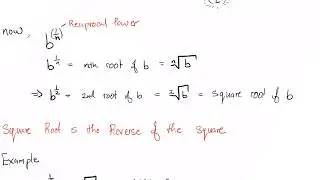 now,
b^(1/n) → Reciprocal Power
b^(1/n) = nth root of b = ⁿ√b
⇒ b^(1/2) = 2nd root of b = ²√b = square root of b
Square Root is the Reverse of the square
Example